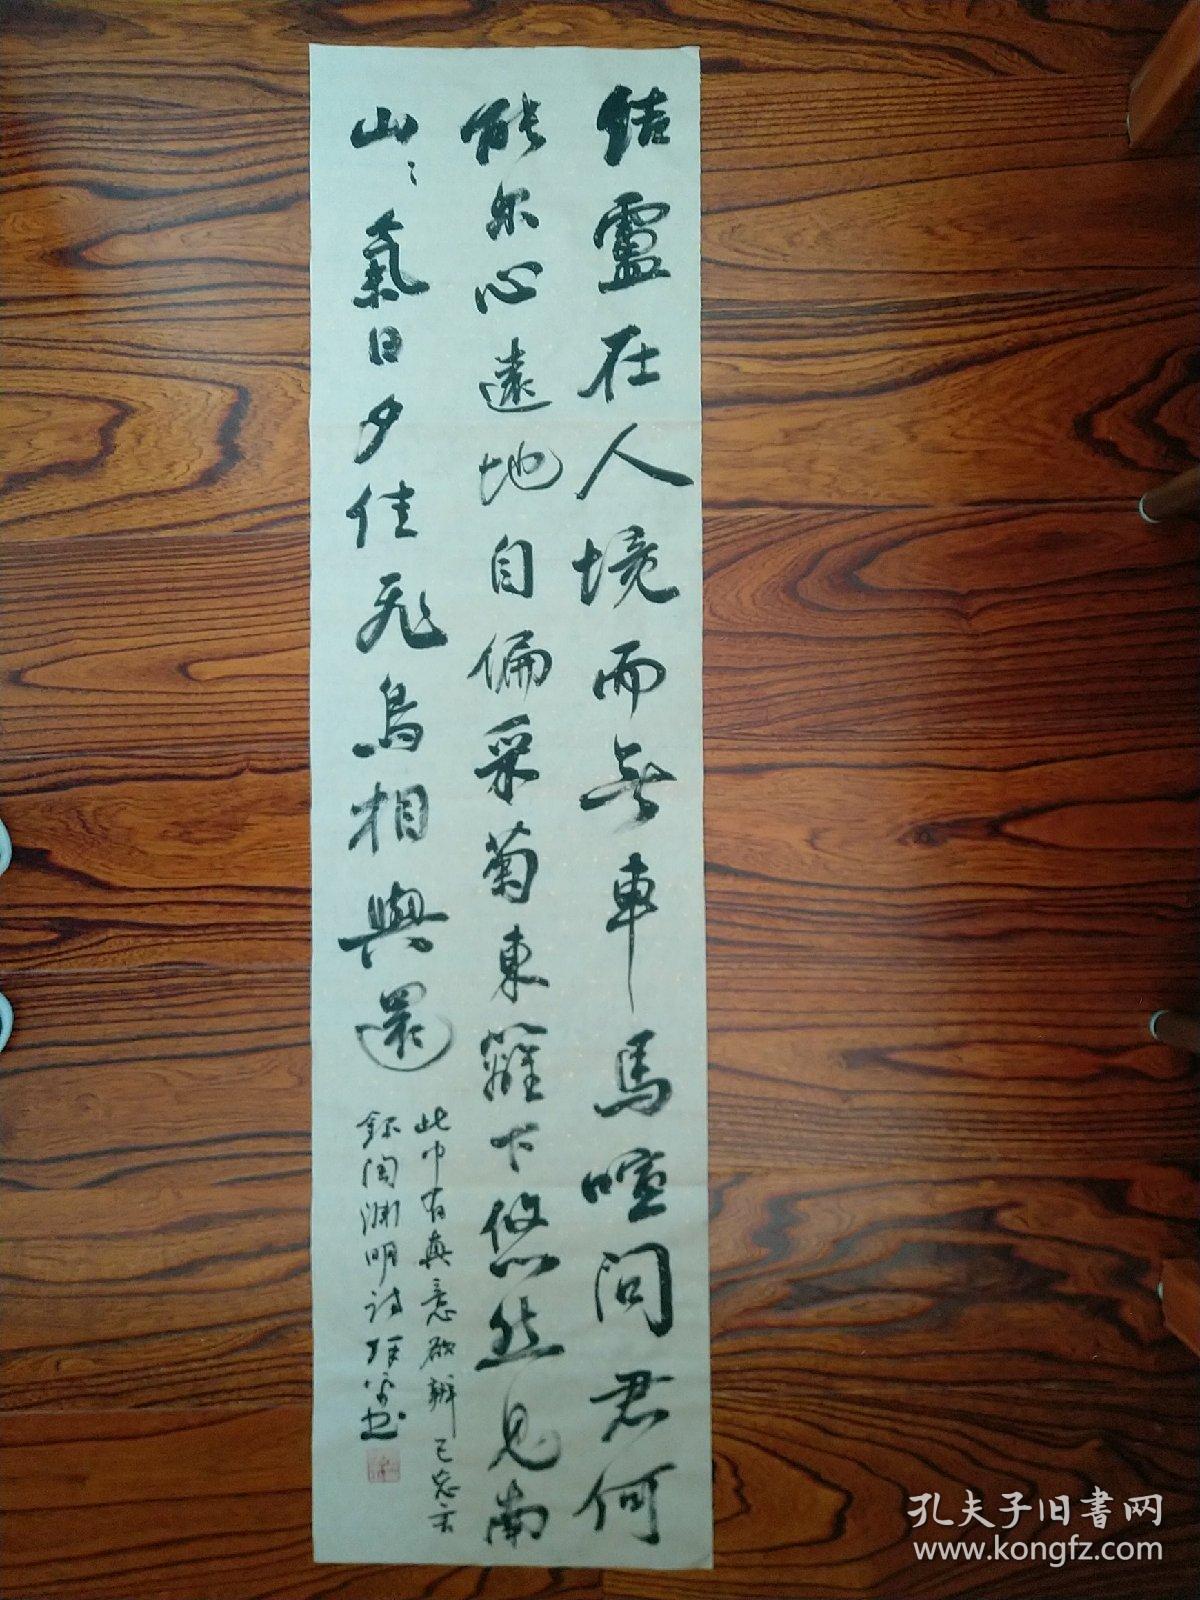 結盧在人境而無車馬喧問君何
能尔心遠地自偏采菊東籬下悠然見南
山〻氣日夕佳飛鳥相與還
此中有真意欲辨已忘言
錄陶淵明詩
孔夫子旧书网
www.kongfz.com